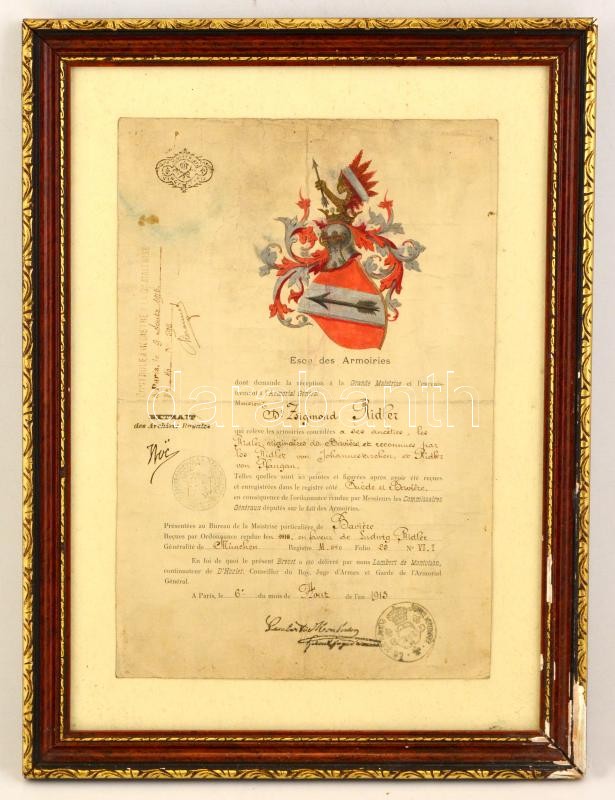 Escu des Armoiries
dont demande la réception à la Grande Maistrise et l'enregis-
trement à l'Armorial Général
Monsieur
Dr Zsigmond Ridler
qui relève les armoiries concédées à ses ancêtres, les
Ridler originaires de Bavière et reconnues par
les Ridler von Johanneskirchen, et Ridler
von
Telles quelles sont ici peintes et figurées après avoir été reçues
et enregistrées dans le registre côté Suède et Bavière,
en conséquence de l'ordonnance rendue par Messieurs les Commissaires
Généraux députés sur le fait des Armoiries.
EXTRAIT
des Archives Royales
Noë
Présentées au Bureau de la Maistrise particulière de Bavière
Reçues par Ordonnance rendue en faveur de Ludwig Ridler
Généralité de München Registre Folio 26 N° VI. I
En foi de quoi le présent Brevet a été délivré par nous Lambert de Montoison,
continuateur de D'Hozier, Conseiller du Roy, Juge d'Armes et Garde de l'Armorial
Général.
A Paris, le 6e du mois de Aout de l'an 1913
darabanth